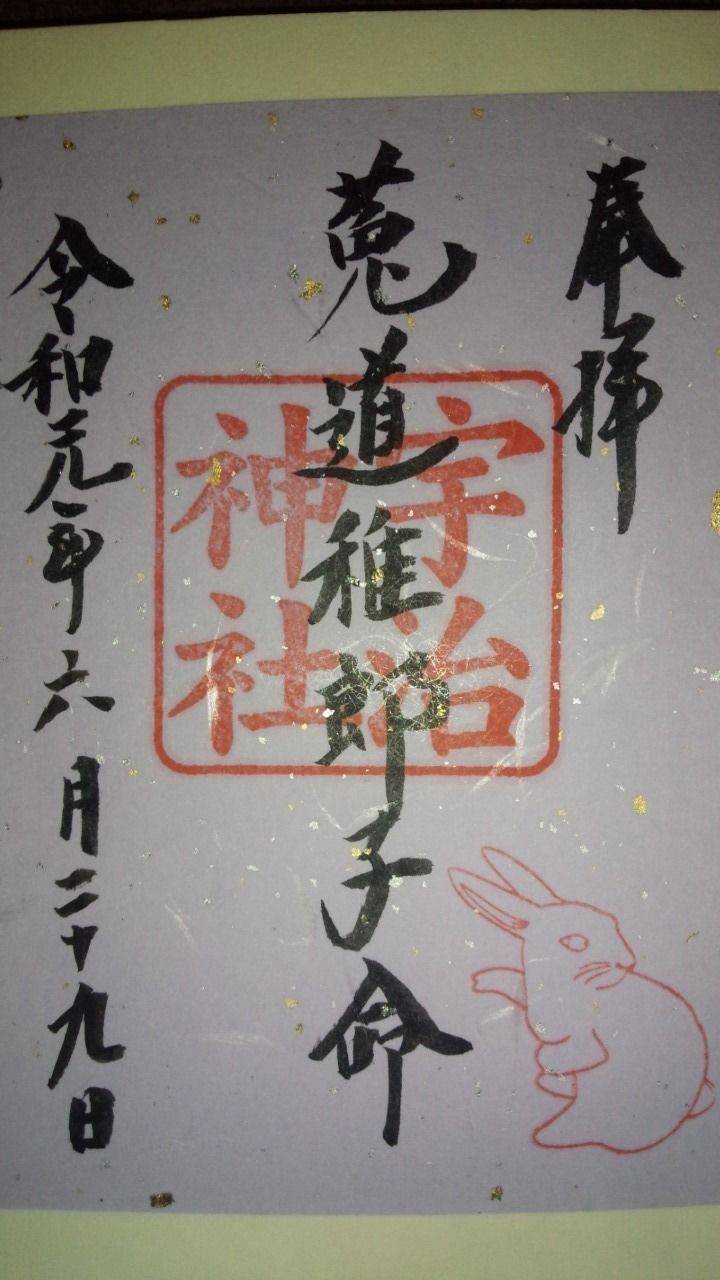 奉拝
菟道稚郎子命
宇治
神社
令和元年六月二十九日